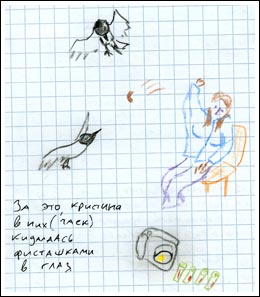 За это кристина
в них (чаек)
кидалась
фисташками
в глаз